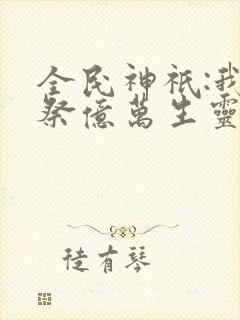 全民神祇:我
祭億萬生靈
徒有琴